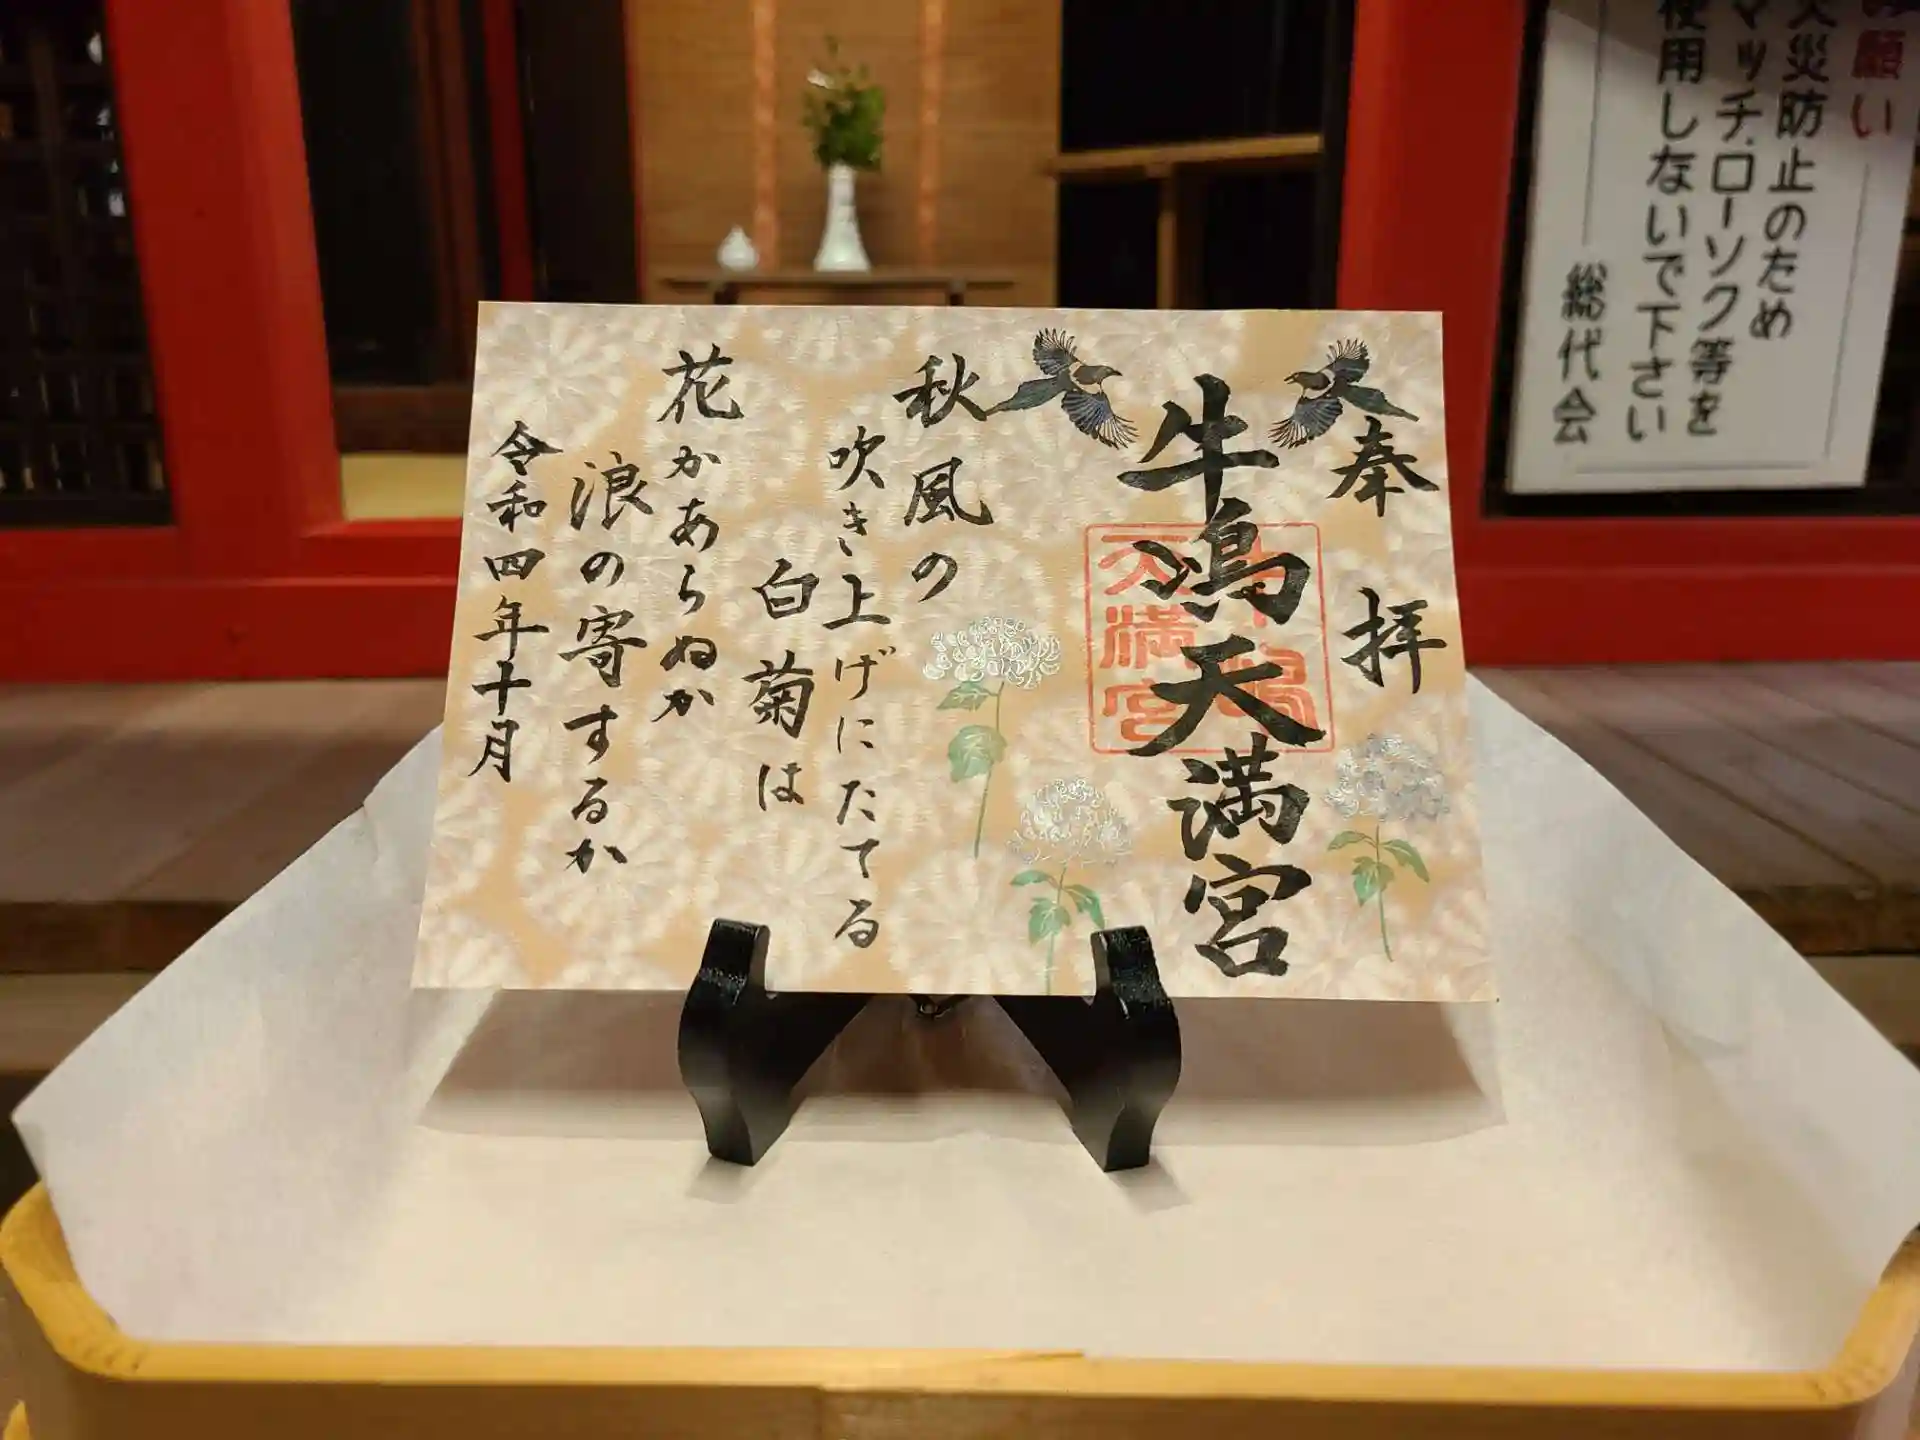 奉拝
牛嶋天満宮
天満宮
秋風の
吹き上げにたてる
白菊は
花かあらぬか
浪の寄するか
令和四年十月
願い
火災防止のため
マッチ.ローソク等を
使用しないで下さい
総代会